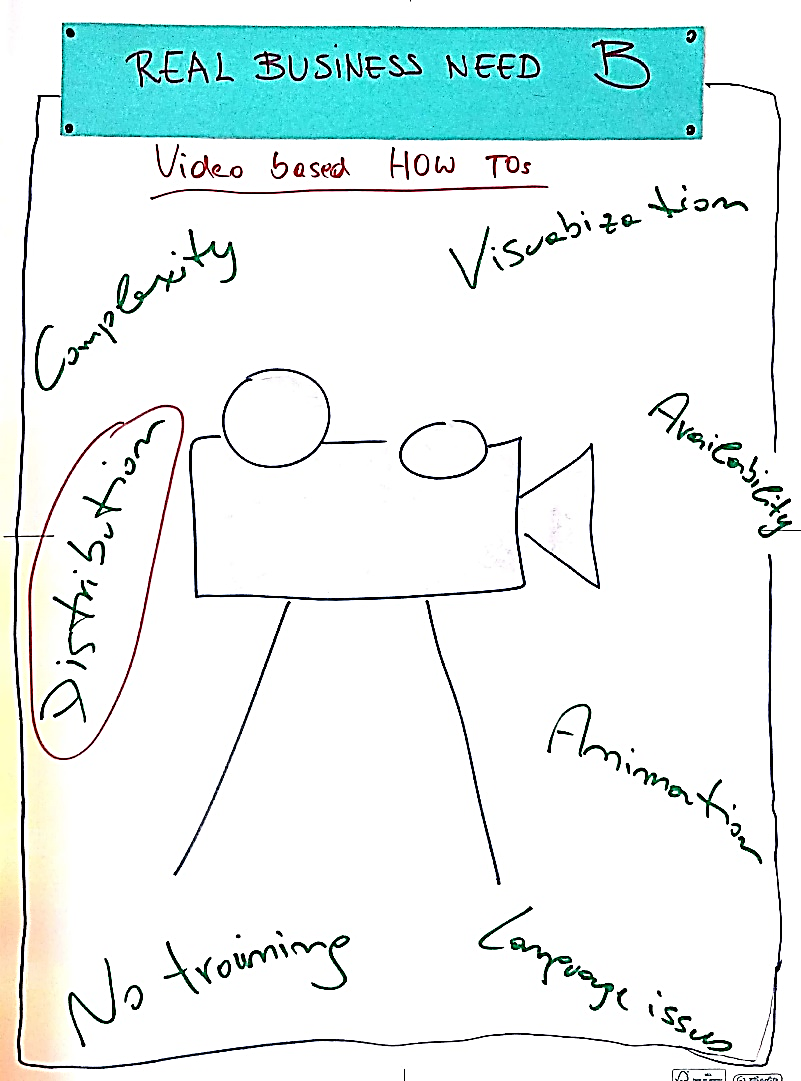 REAL BUSINESS NEED B
Video based HOW TOs
Complexity
Visuabization
Distribution
Availability
Animation
No training
Language issues